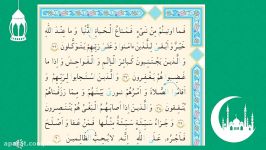 فَما اوتیتُم مِن شَیءٍ فَمَتاعُ الحَیاةِ الدُّنیا وَ ما عِندَ اللهِ
خَیرٌ وَ اَبقی لِلَّذینَ آمَنوا وَ عَلی رَبِّهِم یَتَوَکَّلونَ ٣٦
وَ الَّذینَ یَجتَنِبونَ کَبائِرَ الاِثمِ وَ الفَواحِشَ وَ اِذا ما
غَضِبوا هُم یَغفِرونَ ٣٧ وَ الَّذینَ استَجابوا لِرَبِّهِم وَ
اَقامُوا الصَّلاةَ وَ اَمرُهُم شوری بَینَهُم وَ مِمّا رَزَقناهُم
یُنفِقونَ ٣٨ وَ الَّذینَ اِذا اَصابَهُمُ البَغیُ هُم یَنتَصِرونَ
٣٩ وَ جَزاءُ سَیِّئَةٍ سَیِّئَةٌ مِثلُها فَمَن عَفا وَ اَصلَحَ
فَاَجرُهُ عَلَی اللهِ اِنَّهُ لا یُحِبُّ الظّالِمینَ ٤٠